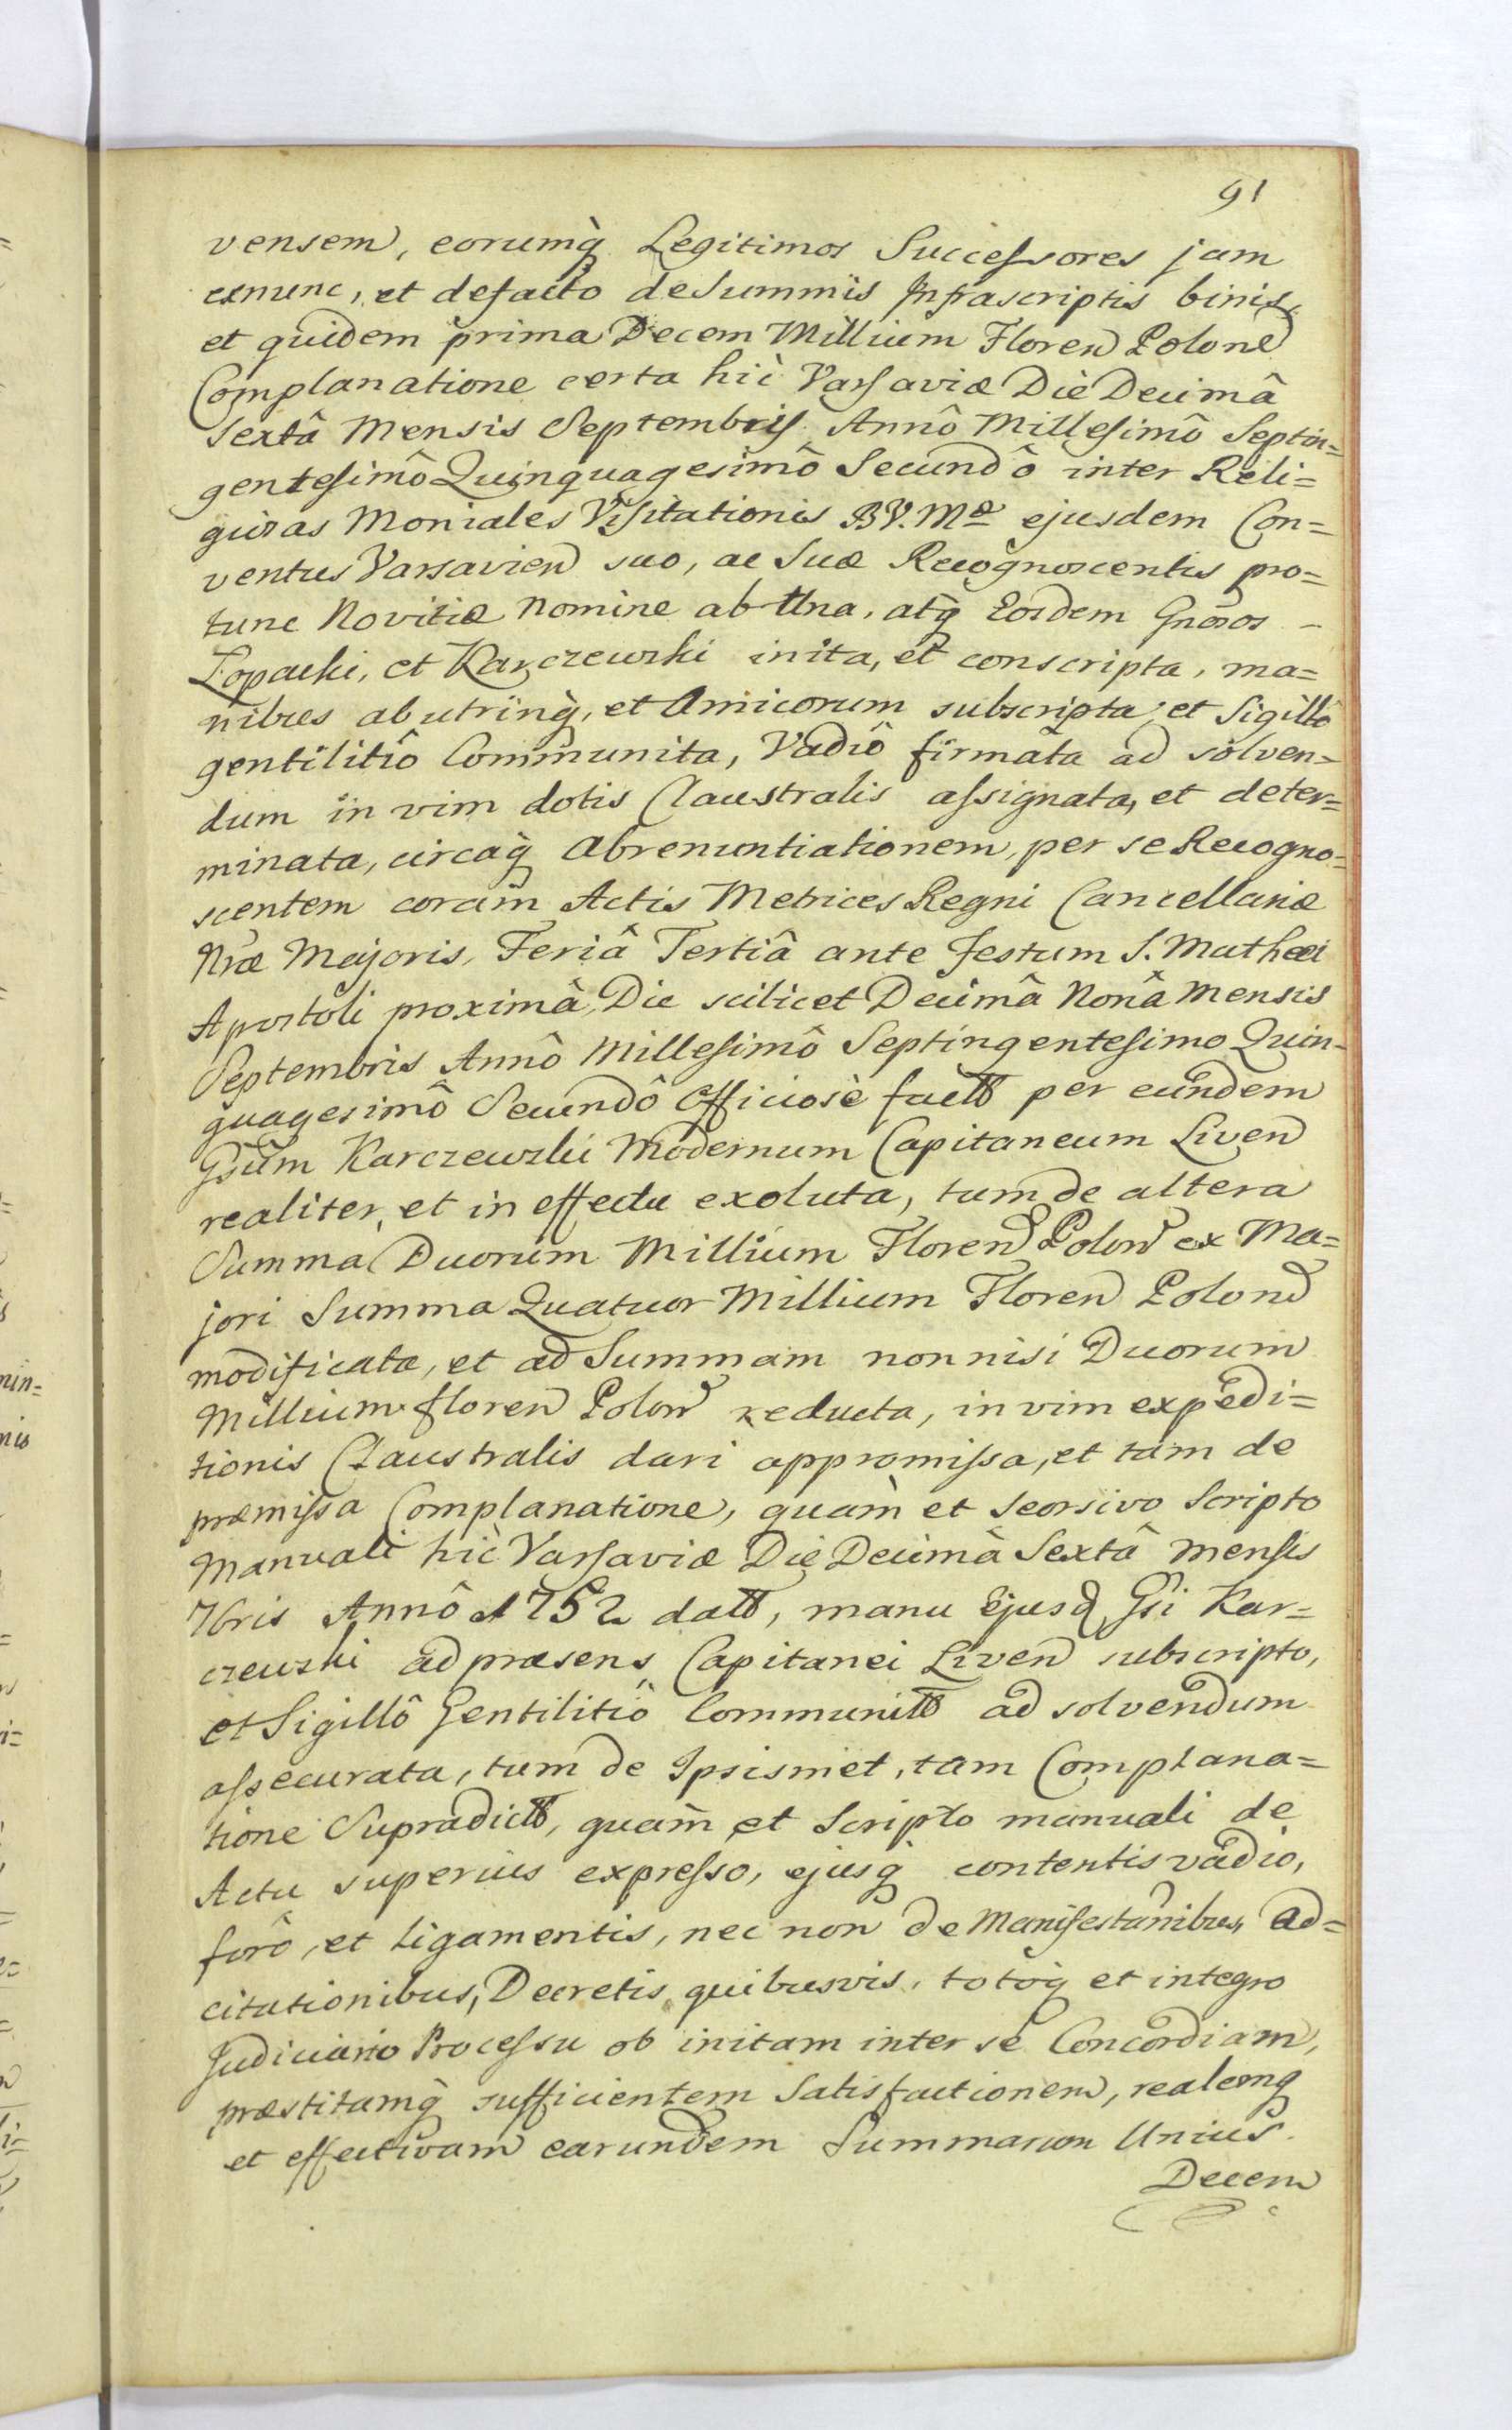 91
vensem, eorumq̀ Legitimos Successores jam
exnunc, et defacto de Summis Infrascriptis binis,
et quidem prima Decem Millium Floren Polone
Complanatione certa hic Varsaviæ Die Decimâ
Sextâ Mensis Septembris Annô Millesimô Septin=
gentesimô Quinquagesimô Secundô inter Reli=
giosas Moniales Visitationis B.V.Mæ ejusdem Con=
ventus Varsavien suo, ac Suæ Recognoscentis pro=
tunc Novitiæ nomine ab Una, atq̀ Eosdem Gnosos -
Łopacki, et Karczewski inita, et conscripta, ma=
nibus ab utrinq̀, et Amicorum subscripta, et Sigillô
gentilitiô Communita, Vadiô firmata ad solven=
dum in vim dotis Claustralis assignata, et deter=
minata, circaq̀ Abrenuntiationem, per se Recogno=
scentem coram Actis Metrices Regni Cancellariæ
Nræ Majoris, Feriâ Tertiâ ante festum S. Mathæi
Apostoli proximâ, Die scilicet Decimâ Nonâ Mensis
Septembris Annô Millesimô Septingentesimo Quin=
quagesimô Secundô Officiosè factt per eundem
Gsum Karczewski Modernum Capitaneum Liven
realiter, et in effectu exoluta, tum de altera
Summa Duorum Millium Floren Polon ex Ma=
jori Summa Quatuor Millium Floren Polon
modificata, et ad Summam nonnisi Duorum
Millium floren Polon reducta, in vim expedi=
tionis Claustralis dari appromissa, et tam de
præmissa Complanatione, quàm et seorsivo Scripto
Manuali hic Varsaviæ Die Decimâ Sextâ Mensis
7bris Annô 1752 datt, manu Ejusd Gsi Kar=
czewski ad præsens Capitanei Liven subscripto,
et Sigillô Gentilitiô Communitt ad solvendum
assecurata, tum de Ipsismet, tam Complana=
tione Supradictt, quam et Scripto manuali de
Actu superius expresso, ejusq̀ contentis vadio,
forô, et ligamentis, nec non de Manifestanibus, Ad=
citationibus, Decretis quibusvis, totoq̀ et integro
Judiciario Processu ob initam inter se Concordiam,
præstitamq̀ sufficientem Satisfactionem, realemq
et effectivam earundem Summarum Unius
Decem